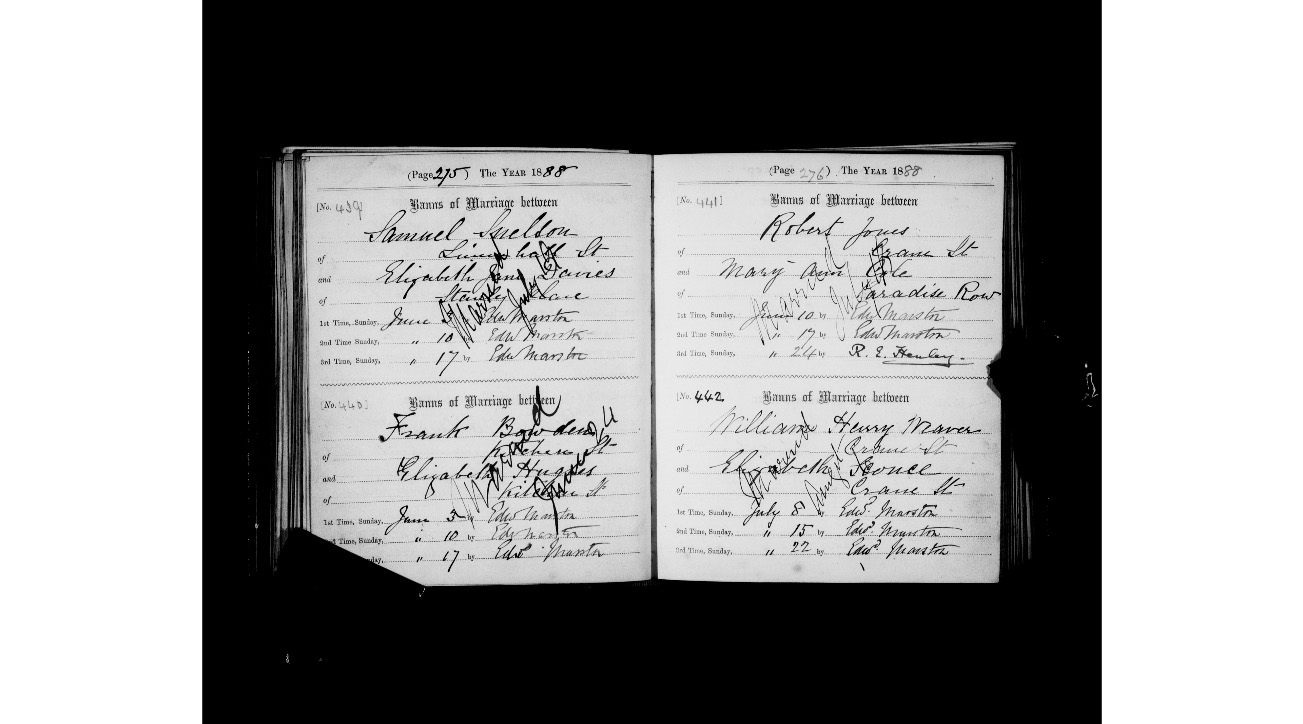 (Page 275) The YEAR 1888
[No. 439 Banns of Marriage between
Samuel Snelson
of Linenhall St
and Elizabeth Jane Davies
of Stanley Place
1st Time, Sunday, June 3 by Edw Marston
2nd Time Sunday, " 10 by Edw Marston
3rd Time, Sunday, " 17 by Edw Marston
Married July
[No. 440] Banns of Marriage between
Frank Bowdens
of Kitchen St
and Elizabeth Hughes
of Kitchen St
1st Time, Sunday, June 3 by Edwd Marston
2nd Time, Sunday, " 10 by Edw Marston
Time, Sunday, " 17 by Edwd Marston
Married June 24
(Page 276) The YEAR 1888
[No. 441] Banns of Marriage between
Robert Jones
of Crane St
and Mary Ann Cole
of Paradise Row
1st Time, Sunday, June 10 by Edw Marston
2nd Time, Sunday, " 17 by Edw Marston
3rd Time, Sunday, " 24 by R. E. Henley.
Married July
[No. 442 Banns of Marriage between
William Henry Weaver
of Crane St
and Elizabeth Sconce
of Crane St
1st Time, Sunday, July 8 by Edwd Marston
2nd Time, Sunday, " 15 by Edwd Marston
3rd Time, Sunday, " 22 by Edwd Marston
Married Augst